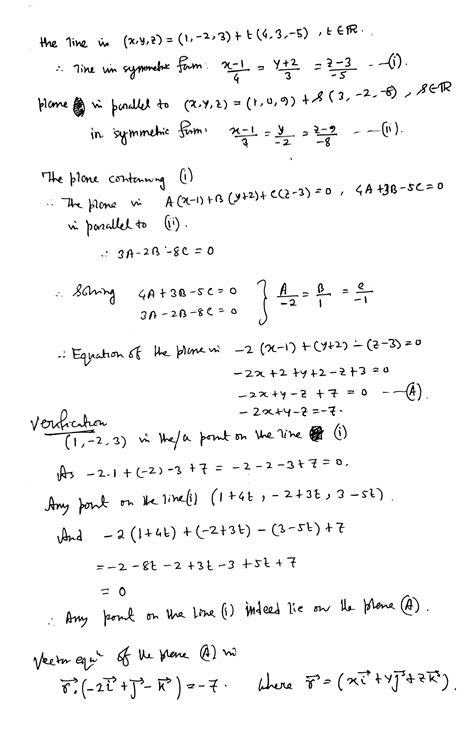 the line is (x,y,z) = (1,-2,3) + t (4,3,-5) , t∈ℝ.
∴ line in symmetric form: (x-1)/4 = (y+2)/3 = (z-3)/-5 --- (i).
plane is parallel to (x,y,z) = (1,0,9) + s (3,-2,-8) , s∈ℝ
in symmetric form: (x-1)/3 = y/-2 = (z-9)/-8 --- (ii).
The plane containing (i)
∴ The plane is A(x-1)+B(y+2)+C(z-3)=0 , 4A+3B-5C=0
is parallel to (ii).
∴ 3A-2B-8C=0
∴ Solving 4A+3B-5C=0
3A-2B-8C=0 } A/-2 = B/1 = C/-1
∴ Equation of the plane is -2(x-1)+(y+2)-(z-3)=0
-2x+2+y+2-z+3=0
-2x+y-z+7=0 --- (A)
-2x+y-z=-7.
Verification
(1,-2,3) is the/a point on the line (i)
As -2.1+(-2)-3+7 = -2-2-3+7=0.
Any point on the line (i) (1+4t, -2+3t, 3-5t).
And -2(1+4t)+(-2+3t)-(3-5t)+7
=-2-8t-2+3t-3+5t+7
=0
∴ Any point on the line (i) indeed lie on the plane (A).
Vector eqⁿ of the plane (A) is
r⃗.(-2i⃗+j⃗-k⃗)=-7. where r⃗=(xi⃗+yj⃗+zk⃗)